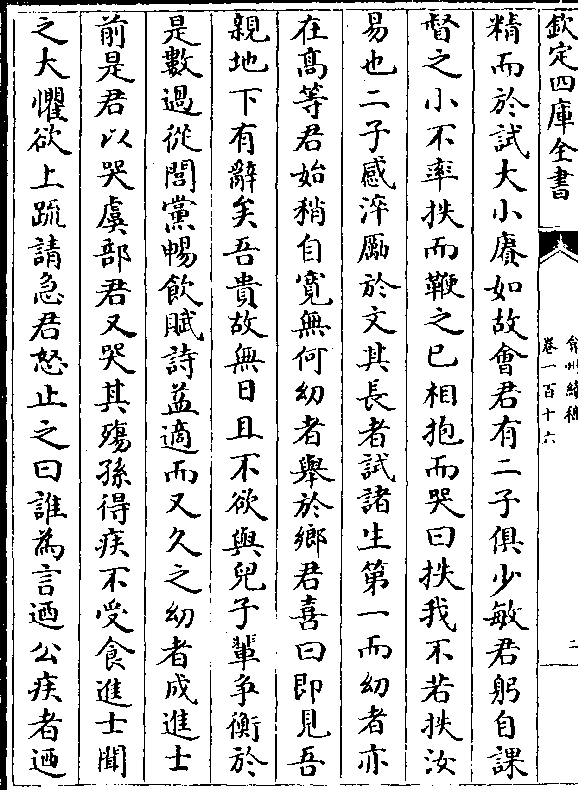 欽定四庫全書
弇州續稿
卷一百十六
二
精而於試大小賡如故會君有二子俱少敏君躬自課
督之小不率抶而鞭之已相抱而哭曰抶我不若抶汝
易也二子感淬勵於文其長者試諸生第一而幼者亦
在髙等君始稍自寛無何幼者舉於鄉君喜曰即見吾
親地下有辭矣吾貴故無日且不欲與兒子輩争衡於
是數過從閭黨暢飲賦詩益適而又久之幼者成進士
前是君以哭虞部君又哭其殤孫得疾不受食進士聞
之大懼欲上䟽請急君怒止之曰誰為言迺公疾者迺